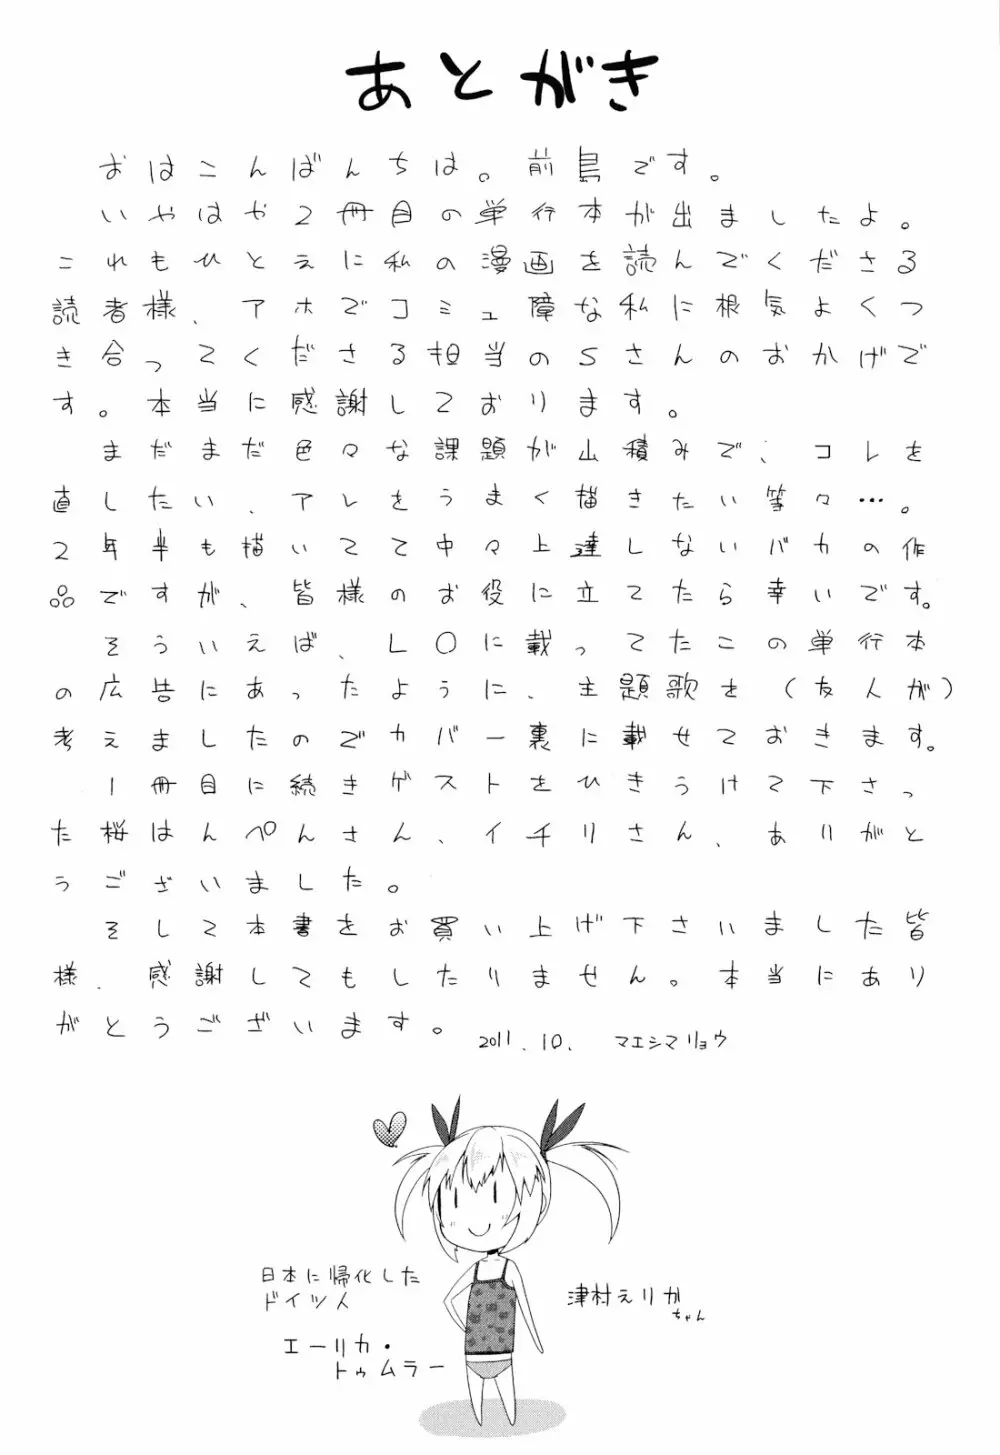 あとがき
おはこんばんちは。前島です。
いやはや2冊目の単行本が出ましたよ。
これもひとえに私の漫画を読んでくださる
読者様、アホでコミュ障な私に根気よくつ
き合ってくださる担当のSさんのおかげで
す。本当に感謝しております。
まだまだ色々な課題が山積みで、コレを
直したい、アレをうまく描きたい等々…。
2年半も描いてて中々上達しないバカの作
品ですが、皆様のお役に立てたら幸いです。
そういえば、LOに載ってたこの単行本
の広告にあったように、主題歌を(友人が)
考えましたのでカバー裏に載せておきます。
1冊目に続きゲストをひきうけて下さっ
た桜はんぺんさん、イチリさん、ありがと
うございました。
そして本書をお買い上げ下さいました皆
様、感謝してもしたりません。本当にあり
がとうございます。
2011.10. マエシマリョウ
日本に帰化した
ドイツ人
エーリカ・
トゥムラー
津村えりか
ちゃん